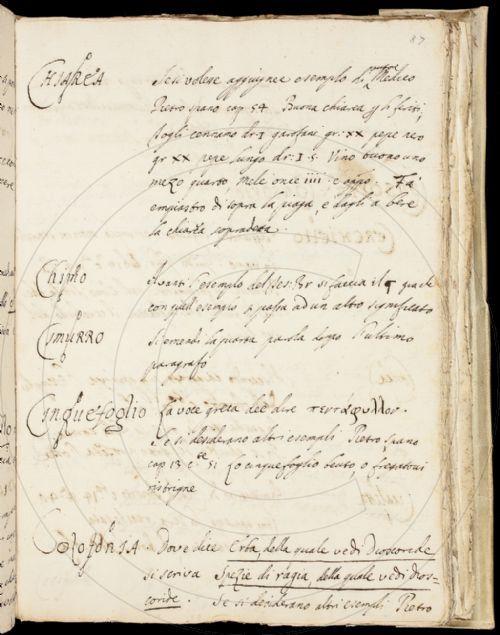 87
CHIAREA Se si volesse aggiugnere esempio d'autore Medico
Pietro spano cap. 54. Buona chiarea p li feriti;
togli cennamo dr: I garofane gr: XX pepe nero
gr XX pepe lungo dr: I s. Vino buono uno
mezo quarto Mele oncie iiii e Fa
empiastro di sopra la piaga, e dagli a bere
la chiarea sopradetta.
CHINO Avanti l'esempio del Tes: Br si faccia il ¶ perche
con quell'esempio si passa ad un altro significato
CIMURRO Si emendi la quarta parola dopo l'ultimo
paragrafo
CINQUEFOGLIO La voce greca dee dire πεντάφυλλον.
Se si desiderano altri esempli Pietro spano
cap 13 e 51 Lo cinquefoglio beuto o fregatovi
ristrigne
COLOFONIA Dove dice Erba, della quale vedi Dioscoride
si scriva Spezie di ragia della quale vedi Dios-
coride. Se si desiderano altri esempli Pietro